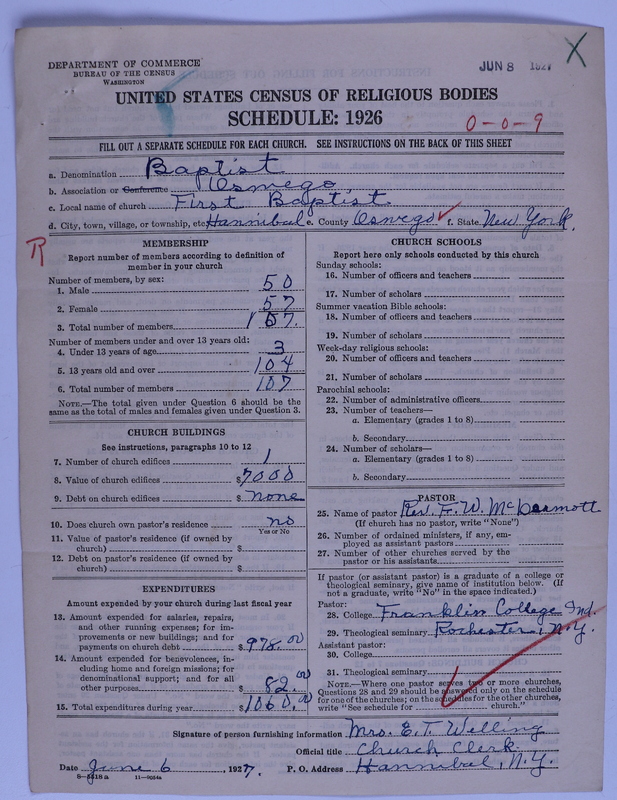 DEPARTMENT OF COMMERCE
BUREAU OF THE CENSUS
WASHINGTON
JUN 8 1927
X
UNITED STATES CENSUS OF RELIGIOUS BODIES
SCHEDULE: 1926
0-0-9
FILL OUT A SEPARATE SCHEDULE FOR EACH CHURCH. SEE INSTRUCTIONS ON THE BACK OF THIS SHEET
a. Denomination Baptist
b. Association or Conference Oswego
c. Local name of church First Baptist
d. City, town, village, or township, etc. Hannibal e. County Oswego f. State New York.
R
MEMBERSHIP
Report number of members according to definition of
member in your church
Number of members, by sex:
1. Male 50
2. Female 57
3. Total number of members 107.
Number of members under and over 13 years old:
4. Under 13 years of age 3
5. 13 years old and over 104
6. Total number of members 107
NOTE.—The total given under Question 6 should be the
same as the total of males and females given under Question 3.
CHURCH BUILDINGS
See instructions, paragraphs 10 to 12
7. Number of church edifices 1
8. Value of church edifices $7000
9. Debt on church edifices $ none
10. Does church own pastor's residence no
Yes or No
11. Value of pastor's residence (if owned by
church) $
12. Debt on pastor's residence (if owned by
church) $
EXPENDITURES
Amount expended by your church during last fiscal year
13. Amount expended for salaries, repairs,
and other running expenses; for im-
provements or new buildings; and for
payments on church debt $ 978.00
14. Amount expended for benevolences, in-
cluding home and foreign missions; for
denominational support; and for all
other purposes 82.00
15. Total expenditures during year $1060.00
CHURCH SCHOOLS
Report here only schools conducted by this church
Sunday schools:
16. Number of officers and teachers
17. Number of scholars
Summer vacation Bible schools:
18. Number of officers and teachers
19. Number of scholars
Week-day religious schools:
20. Number of officers and teachers
21. Number of scholars
Parochial schools:
22. Number of administrative officers
23. Number of teachers—
a. Elementary (grades 1 to 8)
b. Secondary
24. Number of scholars—
a. Elementary (grades 1 to 8)
b. Secondary
PASTOR
25. Name of pastor Rev. F. W. McDearmott
(If church has no pastor, write "None")
26. Number of ordained ministers, if any, em-
ployed as assistant pastors
27. Number of other churches served by the
pastor or his assistants
If pastor (or assistant pastor) is a graduate of a college or
theological seminary, give name of institution below. (If
not a graduate, write "No" in the space indicated.)
Pastor:
28. College Franklin College Ind.
29. Theological seminary Rochester, N.Y.
Assistant pastor:
30. College
31. Theological seminary
NOTE.—Where one pastor serves two or more churches,
Questions 28 and 29 should be answered only on the schedule
for one of the churches; on the schedules for the other churches,
write "See schedule for church."
Signature of person furnishing information Mrs. E. T. Welling
Official title Church Clerk
Date June 6, 1927. P. O. Address Hannibal, N.Y.
8—5518 a 11—9054a